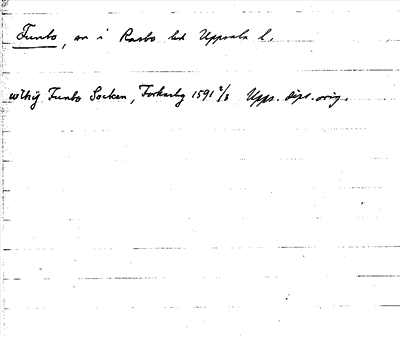 Funbo, sn i Rasbo hd Uppsala l.
wthij Funbo Socken, Forkarby 1591 2/8 Upps. dipl. orig.